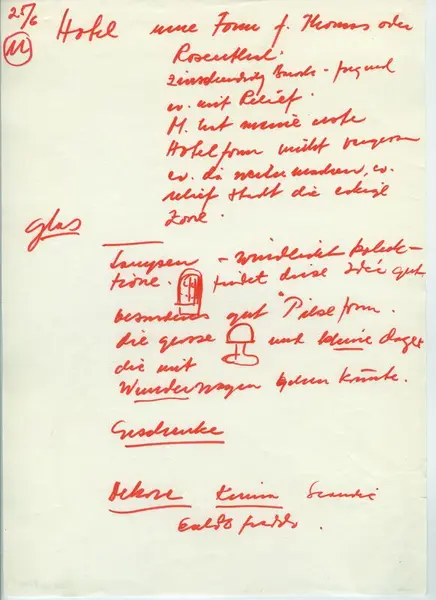 27/6
11
Hotel neue Form f. Thomas oder
Rosenthal.
ev. mit Relief.
M. hat meine erste
Hotelform nicht vergessen
ev. da weitermachen, ev.
relief statt die eckige
Zone.
Glas
Lampen – Windlicht Kollek-
tione. findet diese Idee gut
besonders gut "Pilzform.
die grosse und kleine
die mit
Wunderwagen gehen könnte.
Geschenke
Dekore Kenia
Caldo freddo.